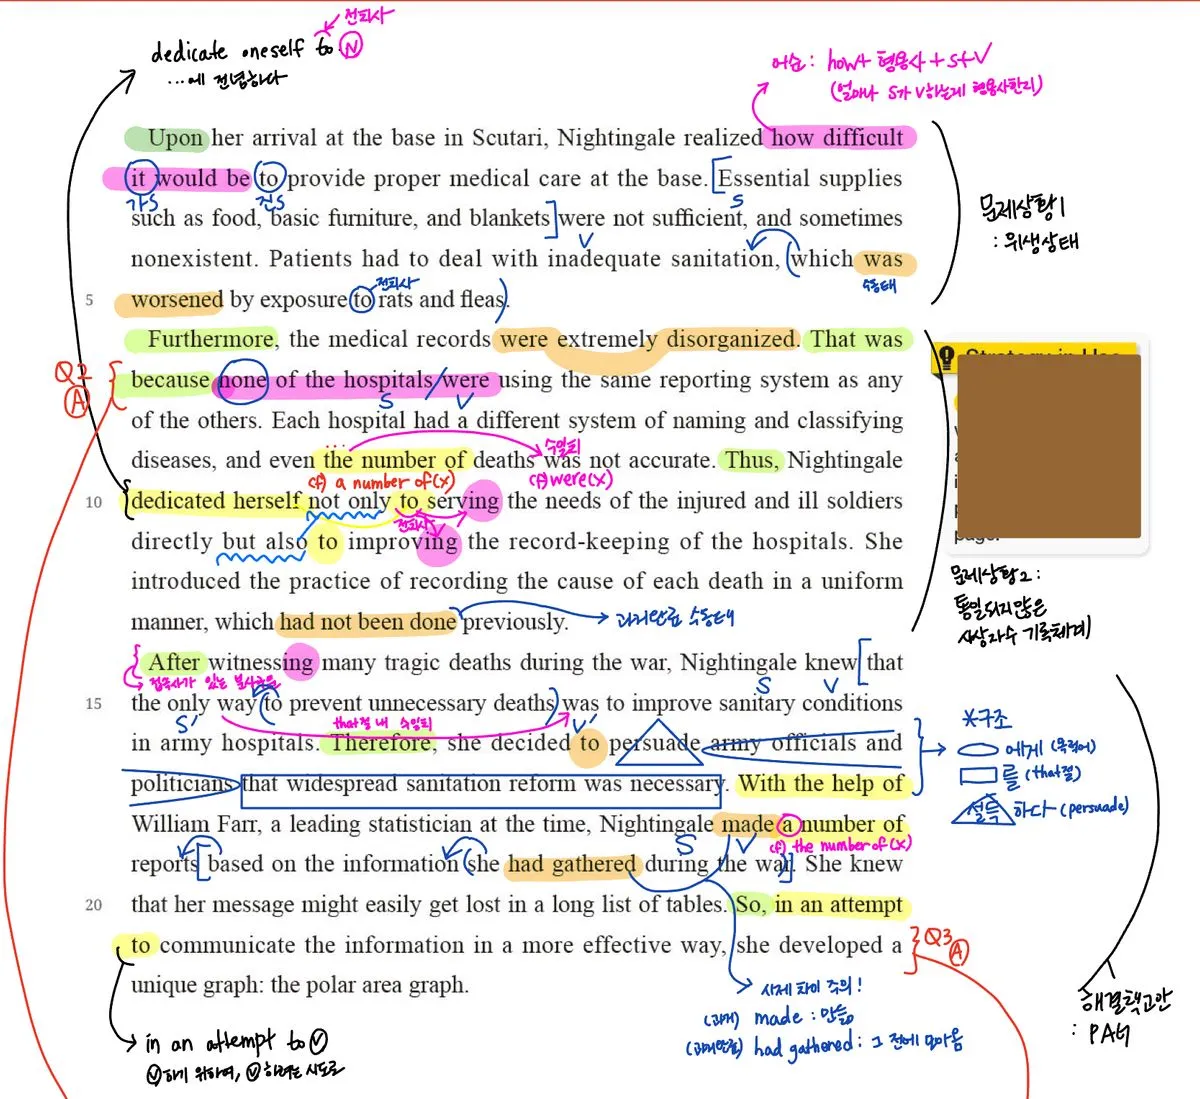 전치사
dedicate oneself to Ⓝ
…에 전념하다
어순: how+ 형용사 + S+V
(얼마나 S가 V하는게 형용사한지)
Upon her arrival at the base in Scutari, Nightingale realized how difficult
it would be to provide proper medical care at the base. [Essential supplies
가S 진S S
such as food, basic furniture, and blankets] were not sufficient, and sometimes
V
문제상황1
: 위생상태
nonexistent. Patients had to deal with inadequate sanitation, (which was
전치사 수동태
5 worsened by exposure to rats and fleas).
Furthermore, the medical records were extremely disorganized. That was
Q2
Ⓐ
because none of the hospitals/were using the same reporting system as any
S V
of the others. Each hospital had a different system of naming and classifying
수일치
diseases, and even the number of deaths was not accurate. Thus, Nightingale
cf) a number of(X) cf) were(X)
10 {dedicated herself not only to serving the needs of the injured and ill soldiers
전치사
directly but also to improving the record-keeping of the hospitals. She
introduced the practice of recording the cause of each death in a uniform
문제상황2:
통일되지않은
사상자수 기록체계
manner, which had not been done previously.
과거완료 수동태
After witnessing many tragic deaths during the war, Nightingale knew [that
접속사가 있는 분사구문 S V
15 the only way (to prevent unnecessary deaths) was to improve sanitary conditions
S' that절 내 수일치 V'
in army hospitals. Therefore, she decided to persuade army officials and
politicians that widespread sanitation reform was necessary. With the help of
*구조
에게 (목적어)
를 (that절)
설득 하다 (persuade)
William Farr, a leading statistician at the time, Nightingale made a number of
S V cf) the number of(X)
reports [based on the information (she had gathered during the war)]. She knew
20 that her message might easily get lost in a long list of tables. So, in an attempt
to communicate the information in a more effective way, she developed a
Q3
Ⓐ
unique graph: the polar area graph.
시제 차이 주의!
(과거) made : 만듦
(과거완료) had gathered : 그 전에 모아옴
in an attempt to Ⓥ
Ⓥ하기 위하여, Ⓥ하려는 시도로
해결책고안
: PAG